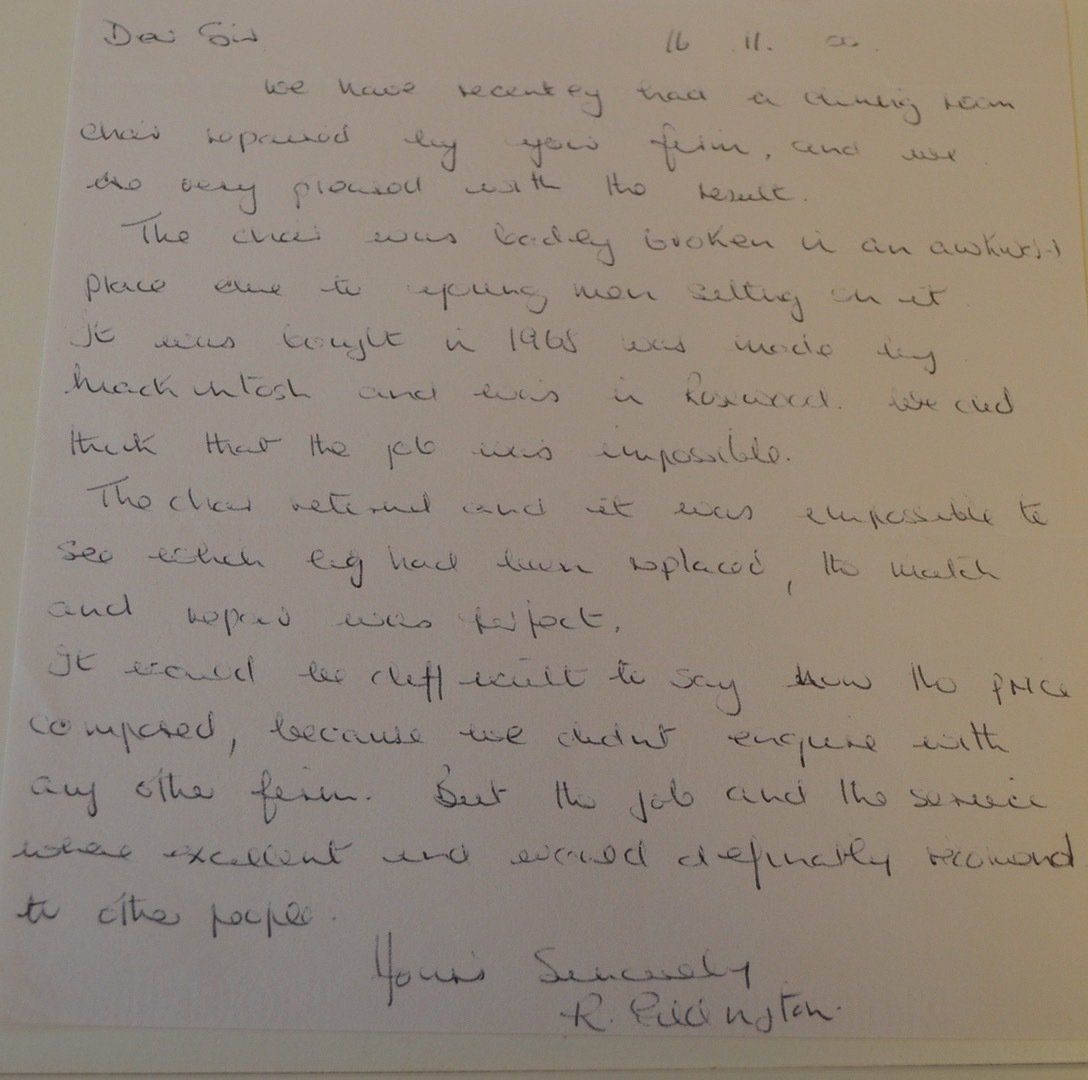 Dear Sir 16 . 11. 00.
We have recently had a dining room
chair repaired by your firm, and we
are very pleased with the result.
The chair was badly broken in an awkward
place due to young men sitting on it
It was bought in 1968 was made by
Mackintosh and was in Rosewood. We did
think that the job was impossible.
The chair returned and it was impossible to
see which leg had been replaced, the match
and repair was perfect.
It would be difficult to say how the price
compared, because we didnt enquire with
any other firm. But the job and the service
where excellent and would definatly recomend
to other people.
Yours Sincerely
R.